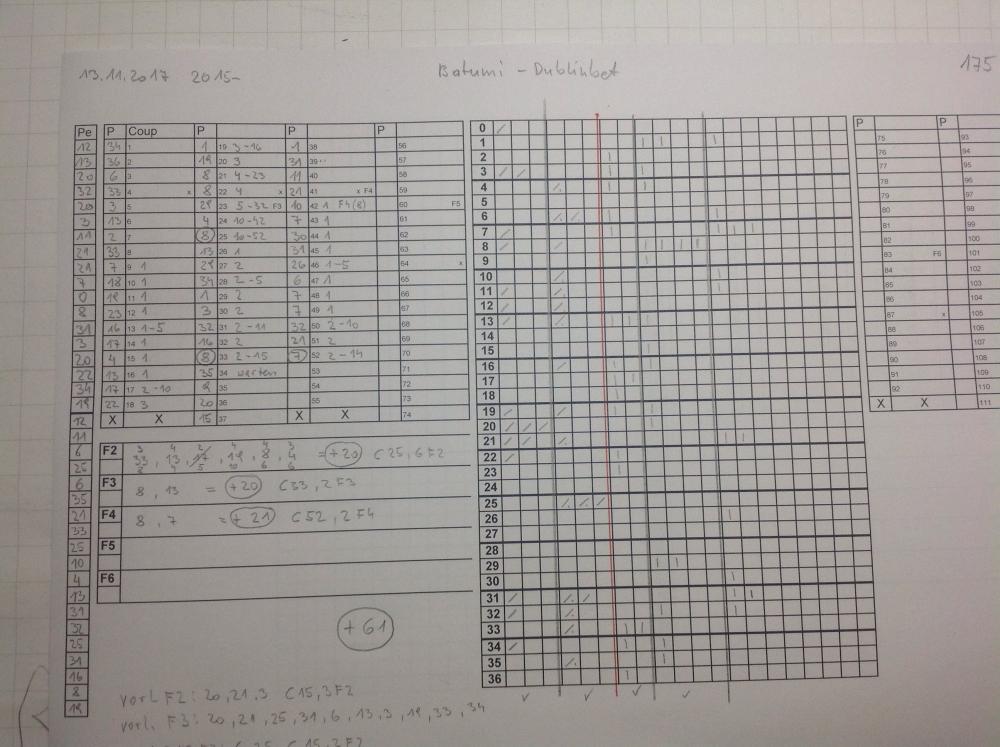 13.11.2017 2015- Batumi - Dublinbet 175
Pe P Coup P P P
12 34 1 1 19 3-16 1 38 56
13 36 2 19 20 3 31 39 57
20 6 3 8 21 4-23 11 40 58
32 33 4 x 8 22 4 x 21 41 x F4 59
20 3 5 29 23 5-32 F3 10 42 1 F4(8) 60 F5
3 13 6 4 24 10-42 7 43 1 61
11 2 7 8 25 10-52 30 44 1 62
21 33 8 13 26 1 31 45 1 63
21 7 9 1 29 27 2 26 46 1-5 64 x
7 18 10 1 34 28 2-5 6 47 1 65
0 19 11 1 1 29 2 7 48 1 66
8 23 12 1 3 30 2 7 49 1 67
31 16 13 1-5 32 31 2-11 32 50 2-10 68
3 17 14 1 16 32 2 21 51 2 69
20 4 15 1 8 33 2-15 7 52 2-14 70
22 13 16 1 35 34 warten 53 71
34 17 17 2-10 9 35 54 72
19 22 18 3 20 36 55 73
12 X X 15 37 X X 74
11
6
25
6
35
21
33
25
10
4
13
31
32
25
31
16
8
19
F2 33, 13, 17, 19, 8, 4 = +20 C25, 6F2
F3 8, 13 = +20 C33, 2F3
F4 8, 7 = +21 C52, 2F4
F5
F6
+61
vorl F2: 20, 21, 3 C15, 3F2
vorl. F3: 20, 21, 25, 31, 6, 13, 3, 19, 33, 34
0
1
2
3
4
5
6
7
8
9
10
11
12
13
14
15
16
17
18
19
20
21
22
23
24
25
26
27
28
29
30
31
32
33
34
35
36
P P
75 93
76 94
77 95
78 96
79 97
80 98
81 99
82 100
83 F6 101
84 102
85 103
86 104
87 x 105
88 106
89 107
90 108
91 109
92 110
X X 111